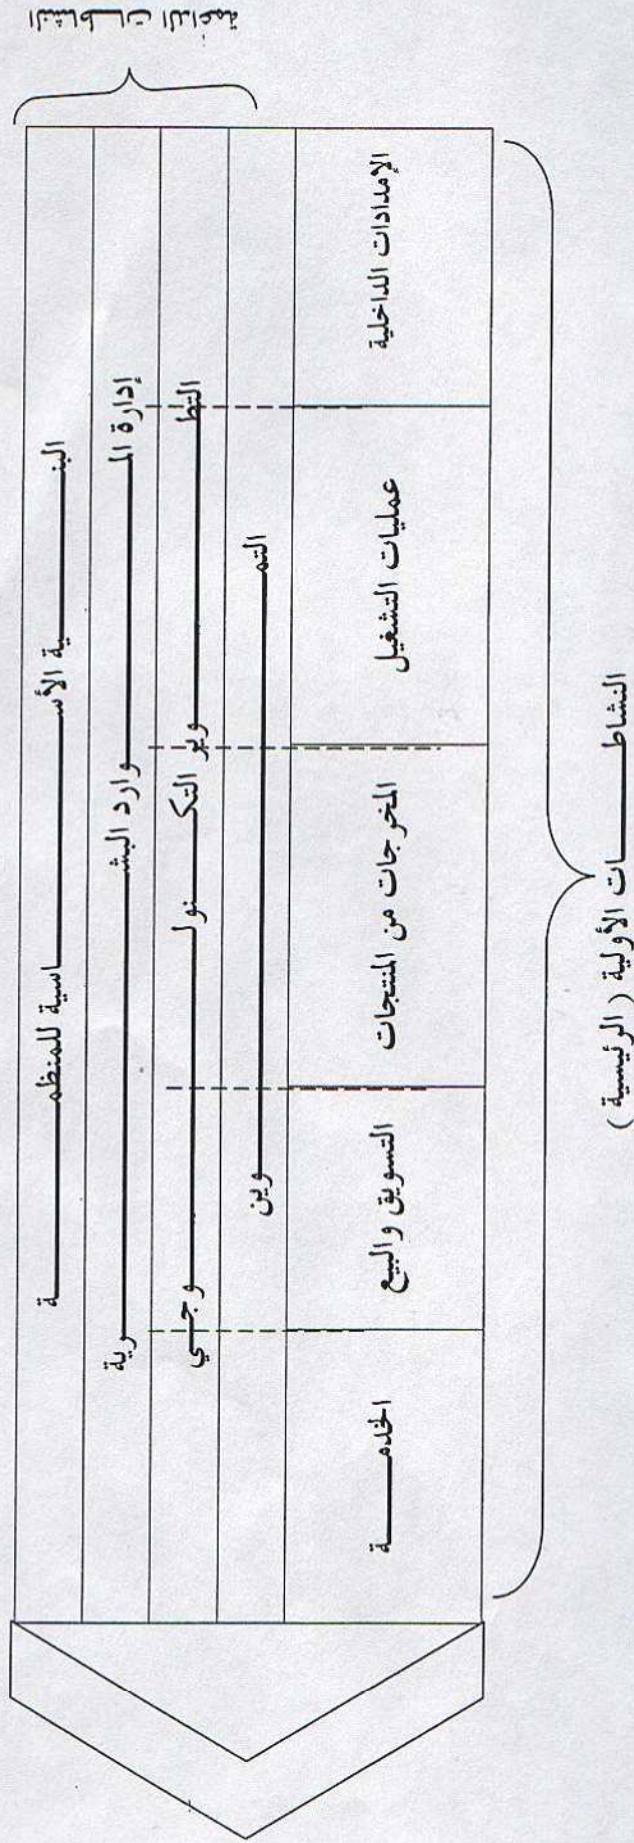 النشاطات الداعمة
البنية الأساسية للمنظمة
إدارة الموارد البشرية
التطوير التكنولوجي
التموين
الإمدادات الداخلية
عمليات التشغيل
المخرجات من المنتجات
التسويق والبيع
الخدمة
النشاطات الأولية ( الرئيسية )